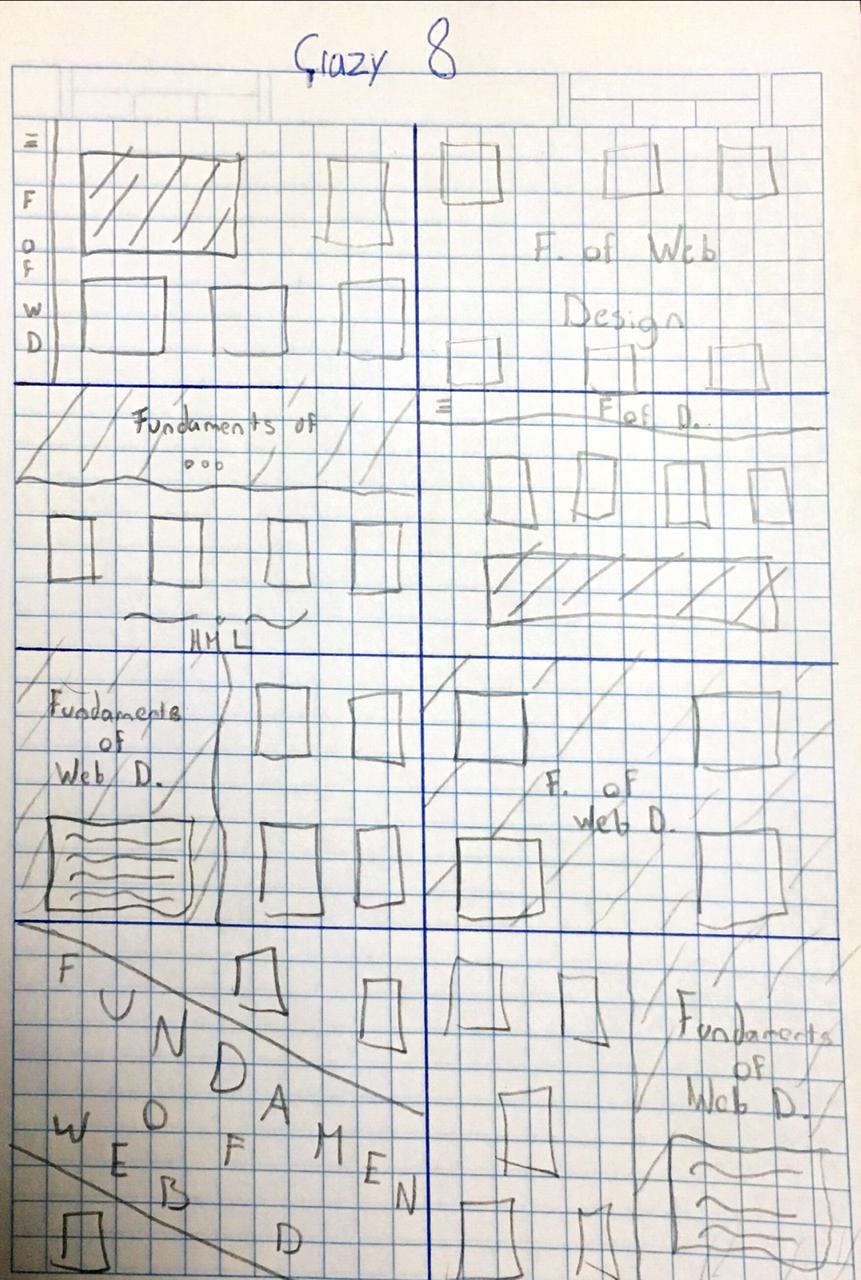 Crazy 8
≡
F
O
F
W
D
F. of Web
Design
Fundaments of
ooo
HML
≡ F of D.
Fundaments
of
Web D.
F. of
Web D.
FUNDAMEN
OF
WEB D
Fundaments
of
Web D.